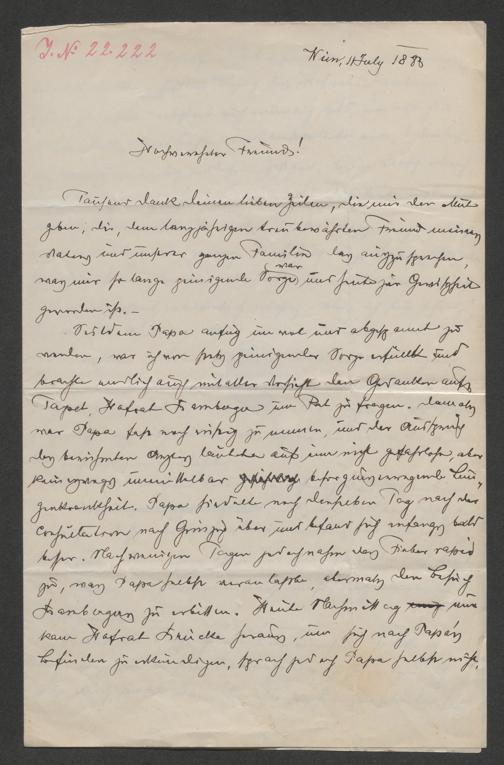 J. No 22.222
Wien, 11 July 1886
Hochverehrter Freund!
Tausend Dank Deinen lieben Zeilen, die mir den Mut
geben, die, dem langjährigen treu bewährten Freund meines
Vaters und unserer ganzen Familie das auszusprechen,
was mir so lange peinigende Sorge war und heute zur Gewißheit
geworden ist. –
Seitdem Papa anfing unwol und abgespannt zu
werden, war ich von stets peinigender Sorge erfüllt und
brachte endlich auch mit aller Vorsicht den Gedanken aufs
Tapet, Hofrat Bamberger um Rat zu fragen. Damals
war Papa fast noch rüstig zu nennen, und der Ausspruch
des berühmten Arztes lautete auf eine nicht gefahrlose, aber
keineswegs unmittelbar besorgnißerregende Lun-
genkrankheit. Papa siedelte noch denselben Tag nach der
Consultation nach Grinzing über und befand sich anfangs bald
besser. Nach wenigen Tagen jedoch nahm das Fieber rapid
zu, was Papa selbst veranlaßte, abermals den Besuch
Bambergers zu erbitten. Heute Nachmittag nun
kam Hofrat heraus, um sich nach Papas
Befinden zu erkundigen, sprach jedoch Papa selbst nicht,